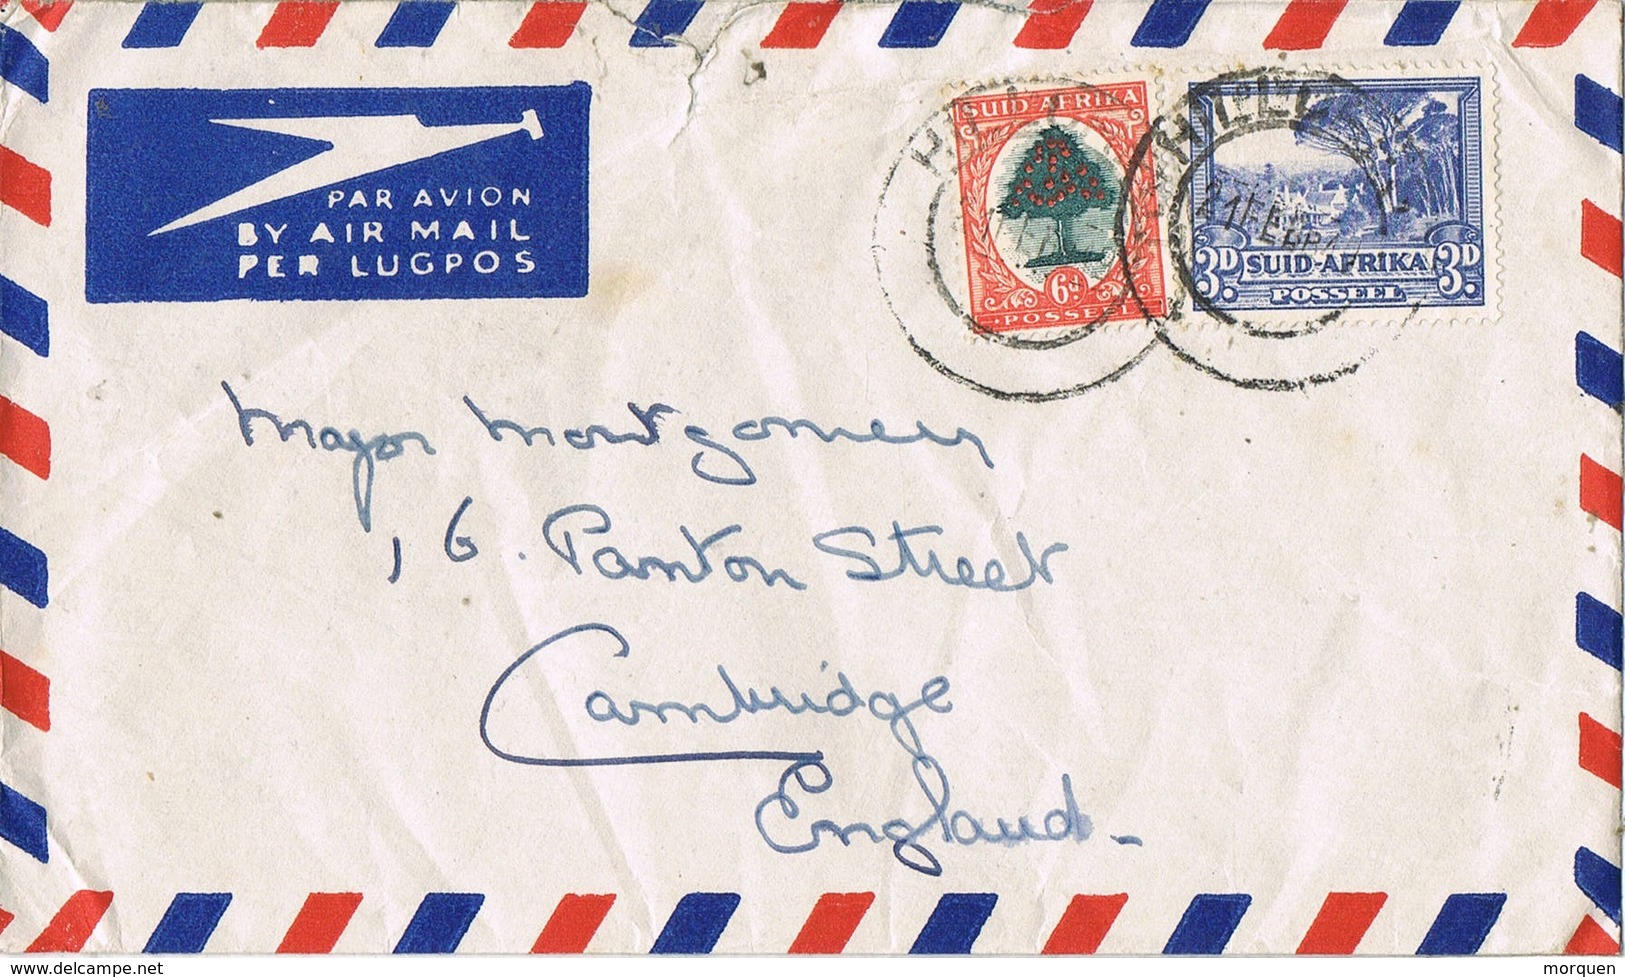 PAR AVION
BY AIR MAIL
PER LUGPOS
SUID-AFRIKA
6d
POSSEEL
3D SUID-AFRIKA 3D
POSSEEL
Major Montgomery
16. Panton Street
Cambridge
England.
www.delcampe.net
morquen